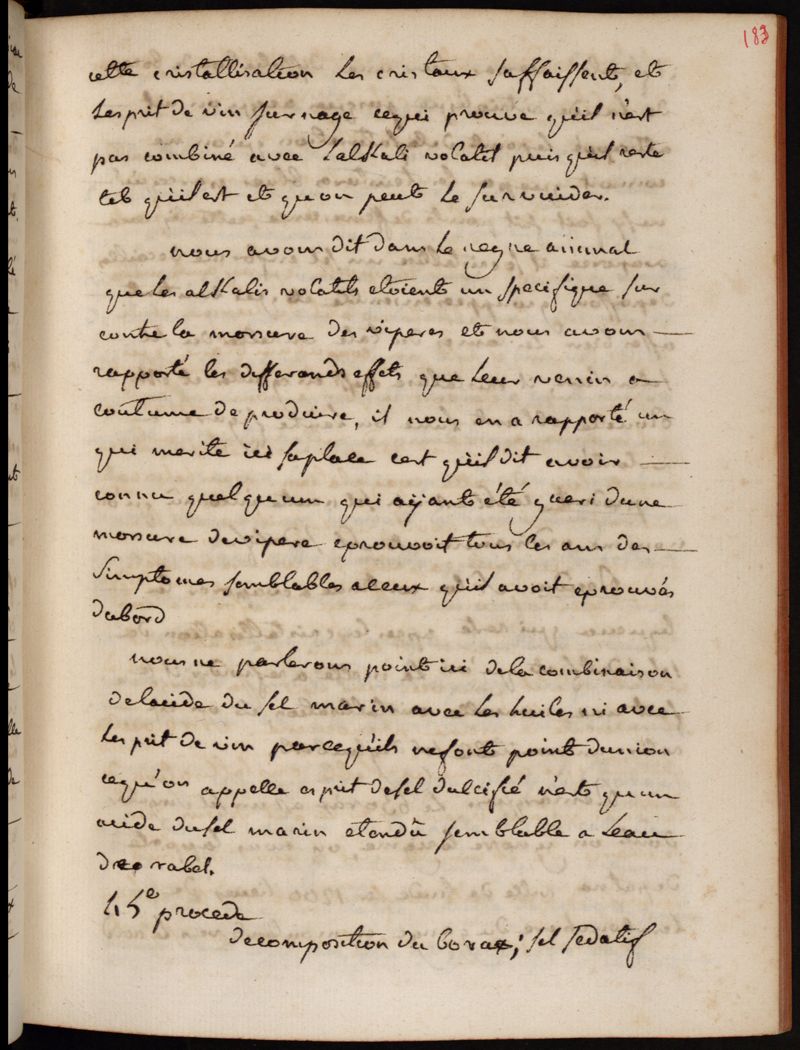 183
cette cristallisation les cristaux saffaissent, et
lesprit de vin surnage cequi prouve quil n'est
pas combiné avec lalkali volatil puis quil reste
tel quil est et quon peut le survuider.
nous avons dit dans le regne animal
que les alkalis volatils etoient un specifique sur
contre la morsure des viperes et nous avons
rapporté les differands effets que leur venin a
coutume de produire, il nous en a rapporté un
qui merite ici saplace cest quil dit avoir
connu quelquun qui aÿant été gueri dune
morsure devipere eprouvoit tous les ans des
simptomes semblables aceux quil avoit eprouvés
dabord
nous ne parlerons point ici dela combinaison
delacide du sel marin avec les huiles ni avec
lesprit de vin parcequils nefont point dunion
cequ'on appelle esprit desel dulcifié n'est quun
acide dusel marin etendû semblable a leau
de rabel.
procede
decomposition du borax; sel sedatif